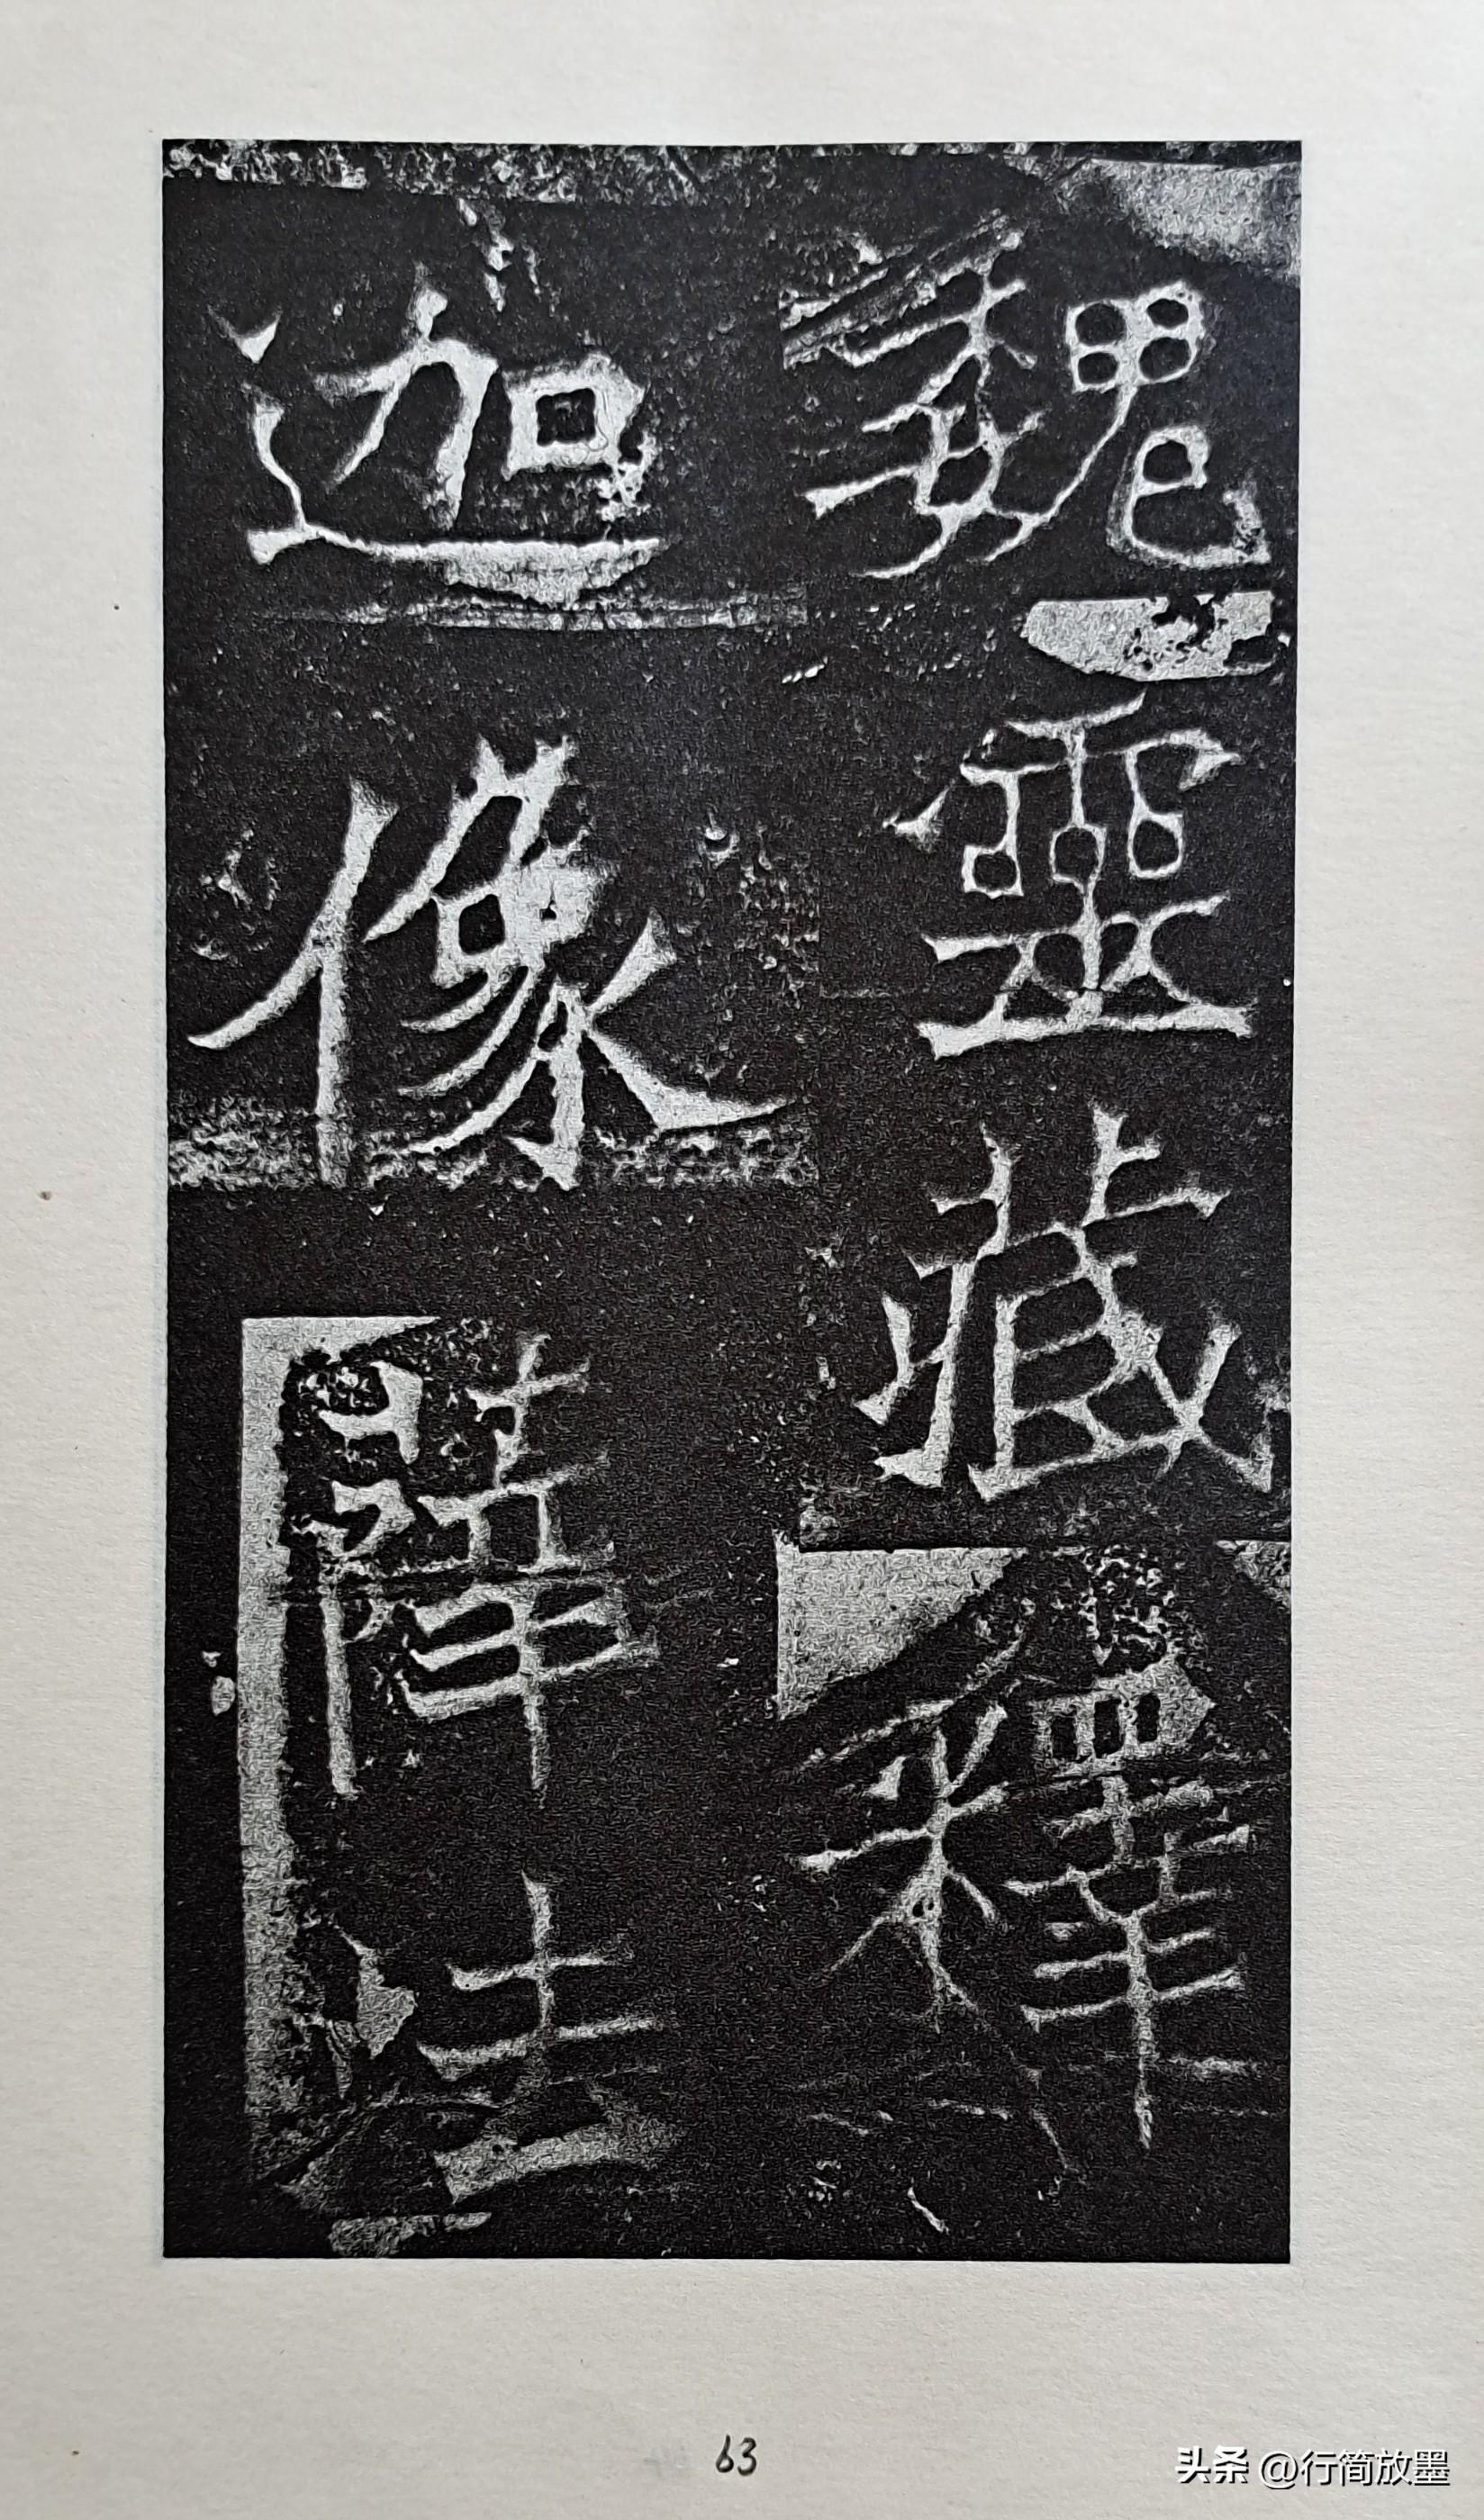 魏靈藏釋
迦像薛法
63
头条 @行简放墨